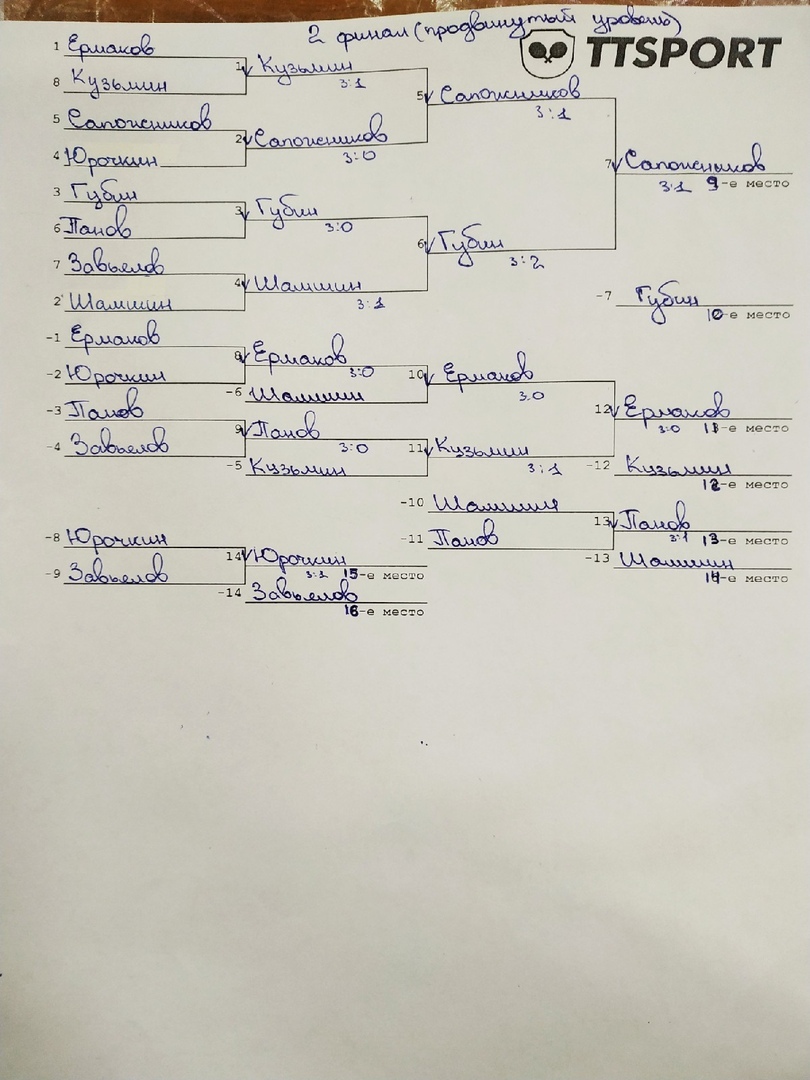 2 финал (продвинутый уровень)
TTSPORT
1 Ермаков
8 Кузьмин
1 Кузьмин
3:1
5 Сапожников
4 Юрочкин
2 Сапожников
3:0
5 Сапожников
3:1
3 Губин
6 Панов
3 Губин
3:0
7 Завьялов
2 Шамшин
4 Шамшин
3:1
6 Губин
3:2
7 Сапожников
3:1 9-е место
-7 Губин
10-е место
-1 Ермаков
-2 Юрочкин
8 Ермаков
3:0
-6 Шамшин
10 Ермаков
3:0
-3 Панов
-4 Завьялов
9 Панов
3:0
-5 Кузьмин
11 Кузьмин
3:1
12 Ермаков
3:0 11-е место
-12 Кузьмин
12-е место
-10 Шамшин
-11 Панов
13 Панов
3:1 13-е место
-13 Шамшин
14-е место
-8 Юрочкин
-9 Завьялов
14 Юрочкин
3:1 15-е место
-14 Завьялов
16-е место